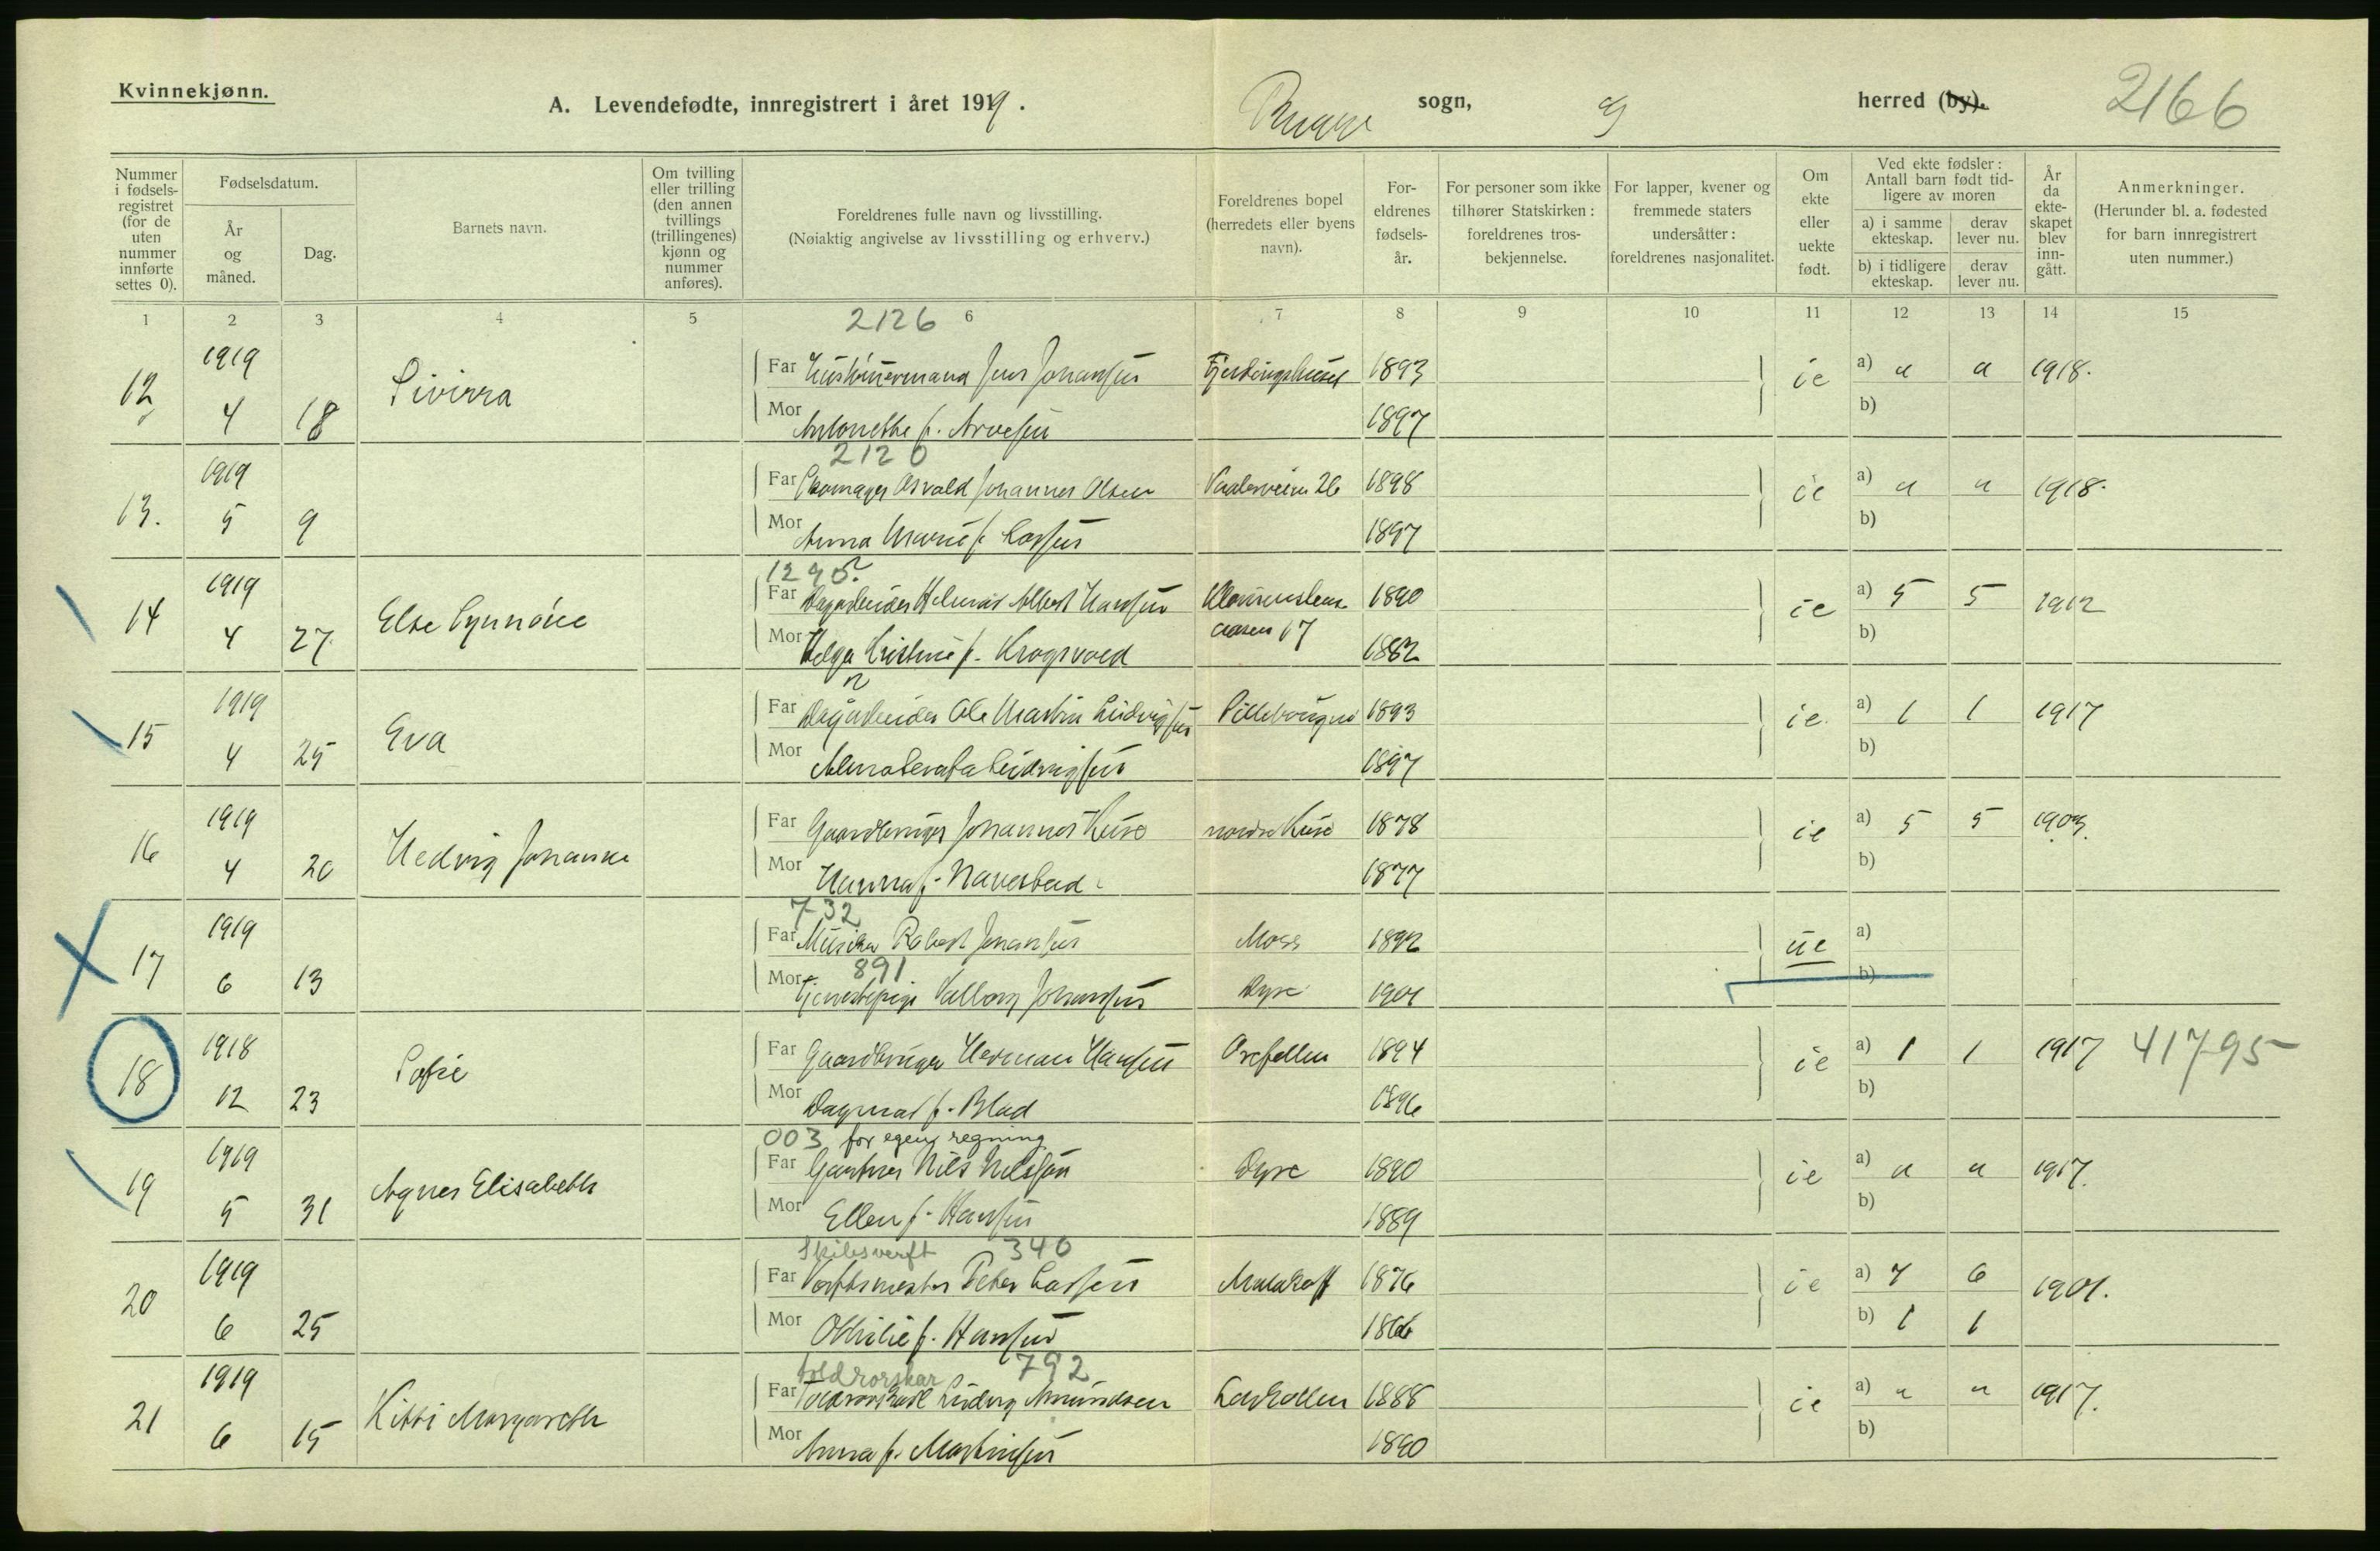 Kvinnekjønn.
A. Levendefødte, innregistrert i året 1919.
Rygge sogn, herred (by).
2166
Nummer i fødsels-registret (for de uten nummer innførte settes 0).
Fødselsdatum.
År og måned.
Dag.
Barnets navn.
Om tvilling eller trilling (den annen tvillings (trillingenes) kjønn og nummer anføres).
Foreldrenes fulle navn og livsstilling.
(Nøiaktig angivelse av livsstilling og erhverv.)
Foreldrenes bopel (herredets eller byens navn).
For-eldrenes fødsels-år.
For personer som ikke tilhører Statskirken: foreldrenes tros-bekjennelse.
For lapper, kvener og fremmede staters undersåtter: foreldrenes nasjonalitet.
Om ekte eller uekte født.
Ved ekte fødsler: Antall barn født tid-ligere av moren
a) i samme ekteskap. derav lever nu.
b) i tidligere ekteskap. derav lever nu.
År da ekte-skapet blev inn-gått.
Anmerkninger.
(Herunder bl. a. fødested for barn innregistrert uten nummer.)
1 2 3 4 5 6 7 8 9 10 11 12 13 14 15
2126
12 1919 4 18
Far Jens Johansen 1893 ie a) " " 1918.
Mor Antonethe f. Arvesen 1897 b)
2120
13. 1919 5 9
Far Skomager Osvald Johannes Olsen Vaalerveien 26 1898 ie a) " " 1918.
Mor Anna Marie f. Larsen 1897 b)
1290?
14 1919 4 27 Else Synnöve
Far Dagarbeider Helmer Albert Hansen 17 1890 ie a) 5 5 1912
Mor Helga Kristine f. Krogsvold 1882 b)
15 1919 4 25 Eva
Far Dagarbeider Ole Martin Ludvigsen 1893 ie. a) 1 1 1917
Mor Ludvigsen 1897 b)
16 1919 4 20 Hedvig Johanne
Far Gaardbruger Johannes Huse nordre Huse 1878 ie a) 5 5 1903.
Mor Hanna f. Navestad 1877 b)
732
17 1919 6 13
Far Musiker Robert Johansen Moss 1892 ue a)
891
Mor Tjenestepige Valborg Johansen Dyre 1901 b)
18 1918 12 23 Sofie
Far Gaardbruger Herman Hansen Orefellen 1894 ie a) 1 1 1917 41795
Mor Dagmar f. Blad 1896 b)
003 for egen regning
19 1919 5 31 Agnes Elisabeth
Far Gartner Nils Nilsson Dyre 1890 ie a) " " 1917.
Mor Ellen f. Hansen 1889 b)
Skibsverft 340
20 1919 6 25
Far Verftsmester Peter Larsen Malakoff 1876 ie a) 7 6 1901.
Mor Othilie f. Hansen b) 1 1
toldrorskar 792
21 1919 6 15 Kitti Margareth
Far Toldrorskarl Ludvig Amundsen Larkollen 1888 ie a) " " 1917.
Mor Anna f. Martinsen 1890 b)